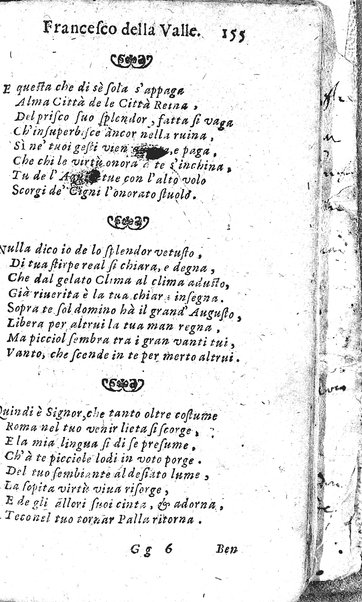 Francesco della Valle. 155
E questa che di sè sola s'appaga
Alma Città de le Città Reina,
Del prisco suo splendor, fatta sì vaga
Ch'insuperbisce ancor nella ruina,
Sì ne' tuoi gesti vien e paga,
Che chi le virtù onora à te s'inchina,
Tu de l' tue con l'alto volo
Scorgi de' Cigni l'onorato stuolo.
Nulla dico io de lo splendor vetusto,
Di tua stirpe real sì chiara, e degna,
Che dal gelato Clima al clima adusto,
Già riuerita è la tua chiara insegna.
Sopra te sol domino hà il grand' Augusto,
Libera per altrui la tua man regna,
Ma picciol sembra tra i gran vanti tui,
Vanto, che scende in te per merto altrui.
Quindi è Signor, che tanto oltre costume
Roma nel tuo venir lieta si scorge,
E la mia lingua sì di se presume,
Ch'à te picciole lodi in voto porge.
Del tuo sembiante al desiato lume,
La sopita virtù viua risorge,
E de gli allori suoi cinta, & adorna,
Teco nel tuo tornar Palla ritorna.
G g 6 Ben